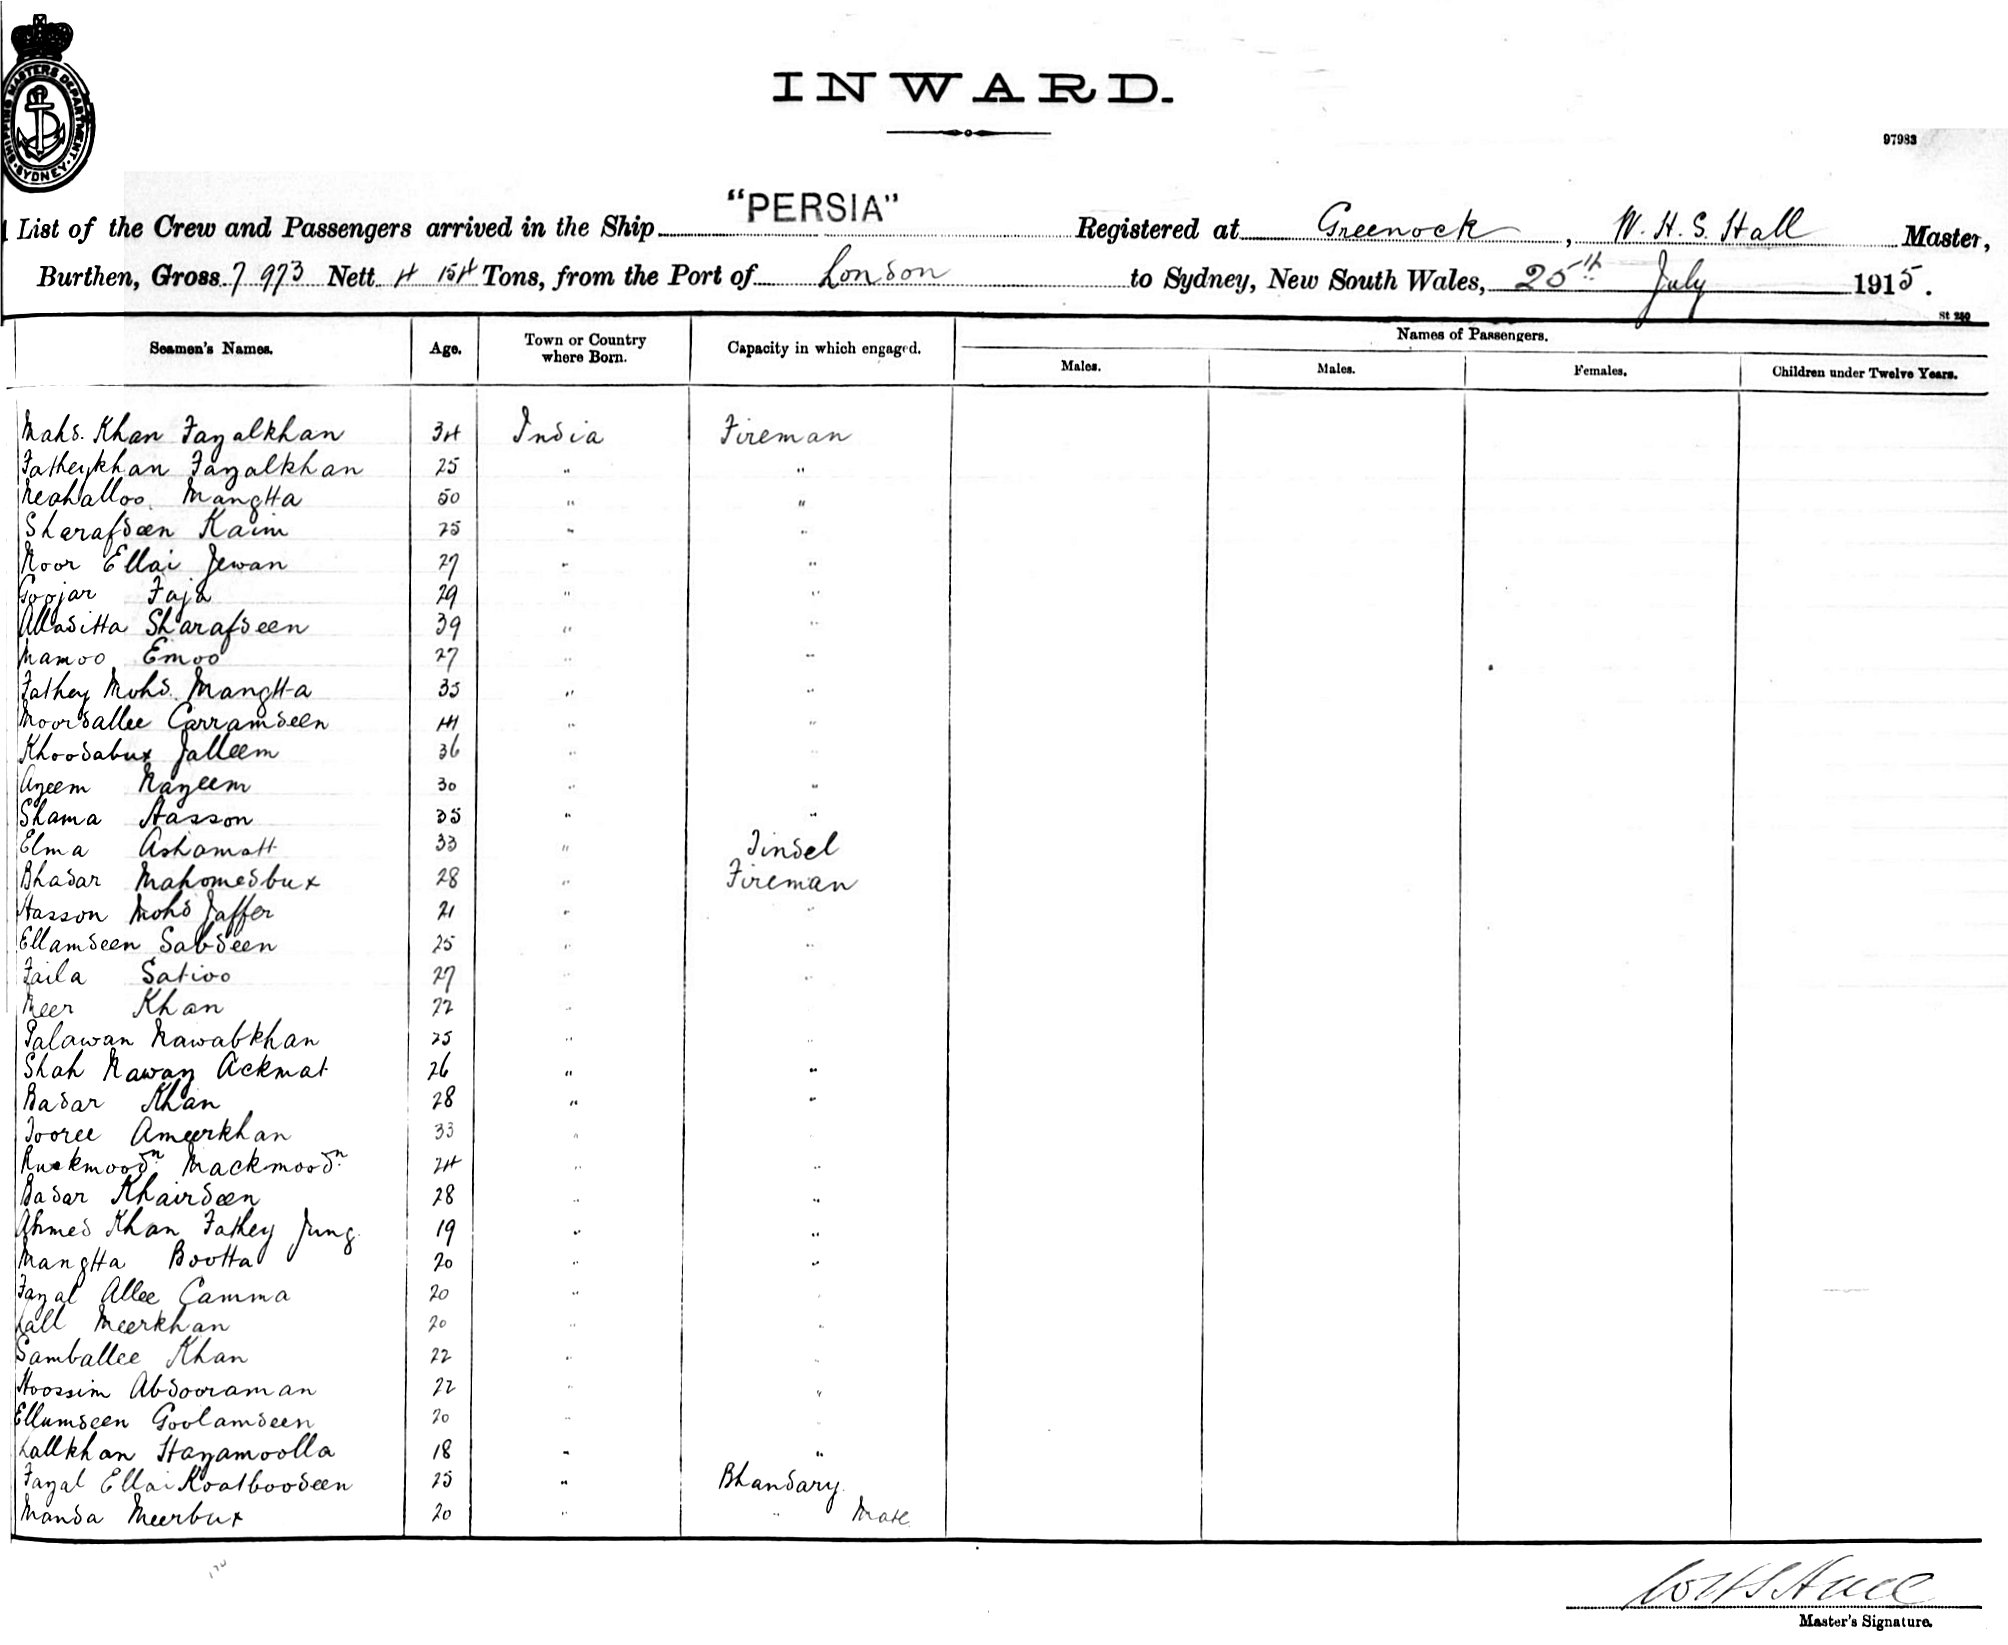 SHIPPING MASTERS DEPARTMENT · SYDNEY ·
INWARD.
97983
List of the Crew and Passengers arrived in the Ship "PERSIA" Registered at Greenock, W. H. S. Hall Master,
Burthen, Gross 7 973 Nett 4 154 Tons, from the Port of London to Sydney, New South Wales, 25th July 1915.
St 250
Seamen's Names. Age. Town or Country where Born. Capacity in which engaged. Names of Passengers.
Males. Males. Females. Children under Twelve Years.
Mahd. Khan Fazalkhan 34 India Fireman
Fatheykhan Fazalkhan 25 " "
Neahalloo Mangtta 50 " "
Sharafdeen Kaim 25 " "
Noor Ellai Jewan 27 " "
Goojar Faja 29 " "
Alladitta Sharafdeen 39 " "
Mamoo Emoo 27 " "
Fathey Mohd. Mangtta 35 " "
Moordallee Carramdeen 44 " "
Khoodabux Jalleem 36 " "
Azeem Nazeem 30 " "
Shama Hasson 35 " "
Elma Ashamatt 33 " Tindel
Bhadar Mahomedbux 28 " Fireman
Hasson Mohd Jaffer 21 " "
Ellamdeen Sabdeen 25 " "
Faila Satioo 27 " "
Meer Khan 22 " "
Palawan Nawabkhan 25 " "
Shah Nawaz Ackmat 26 " "
Badar Khan 28 " "
Tooree Ameerkhan 33 " "
Ruckmoodn Mackmoodn 24 " "
Badar Khairdeen 28 " "
Ahmed Khan Fathey Jung 19 " "
Mangtta Bootta 20 " "
Fazal Allee Camma 20 " "
Lall Meerkhan 20 " "
Samballee Khan 22 " "
Hoossim Abdooraman 22 " "
Ellumdeen Goolamdeen 20 " "
Lallkhan Hazamoolla 18 " "
Fazal Ellai Kootboodeen 25 " Bhandary
Manda Meerbux 20 " " Mate
W H S Hall
Master's Signature.